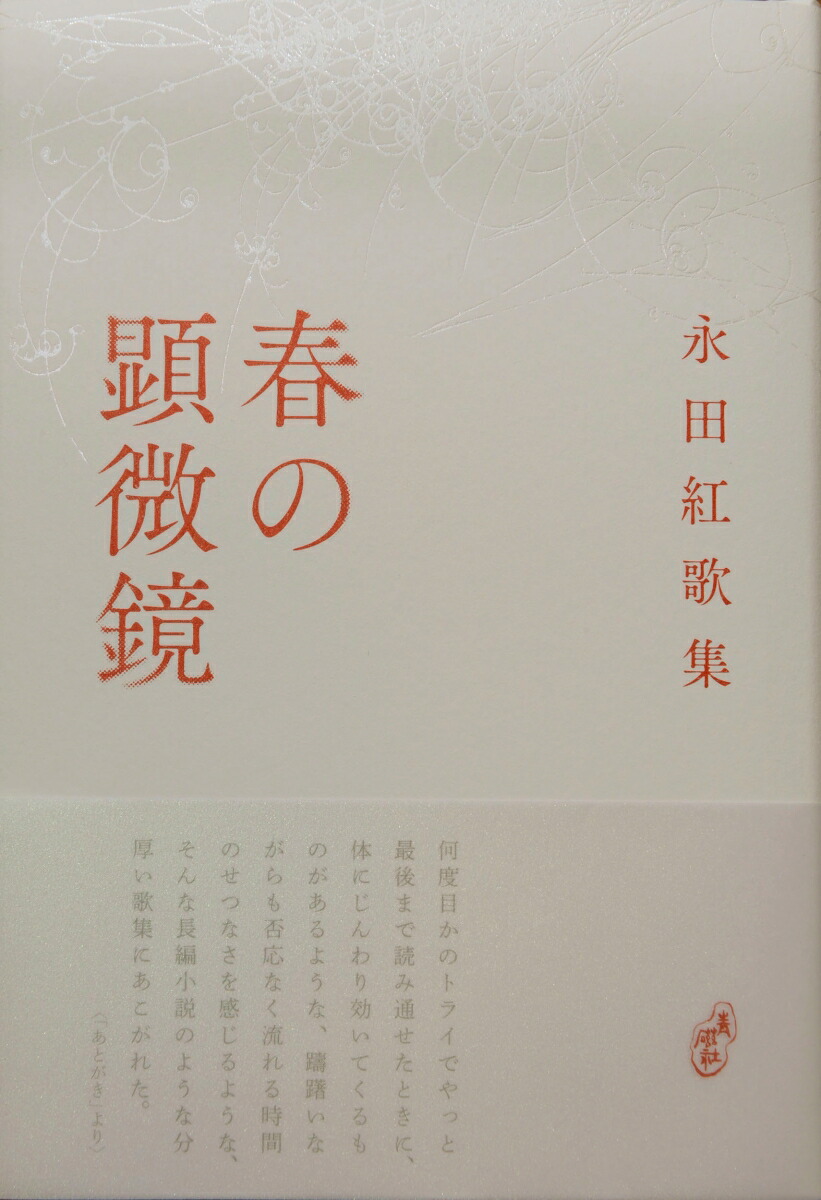 永田紅歌集
春の
顕微鏡
何度目かのトライでやっと
最後まで読み通せたときに、
体にじんわり効いてくるも
のがあるような、躊躇いな
がらも否応なく流れる時間
のせつなさを感じるような、
そんな長編小説のような分
厚い歌集にあこがれた。
（「あとがき」より）
青磁社